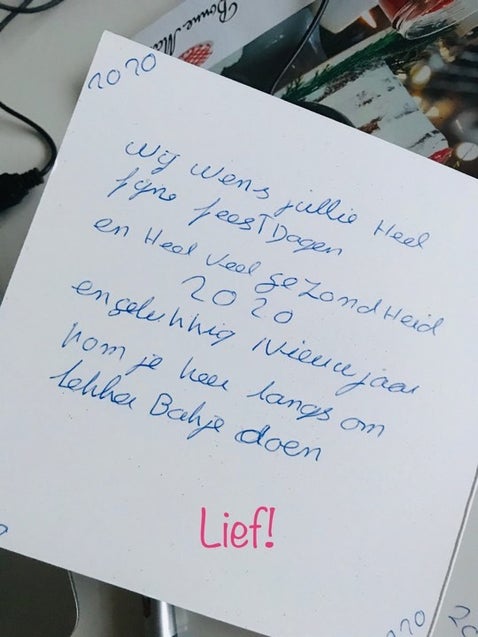 Bonne Ma
2020
Wij wens jullie Heel
fijne feesTDagen
en Heel veel gezondHeid
2020
en gelukkig Nieuwjaar
kom je keer langs om
lekker Bakje doen
Lief!
2020